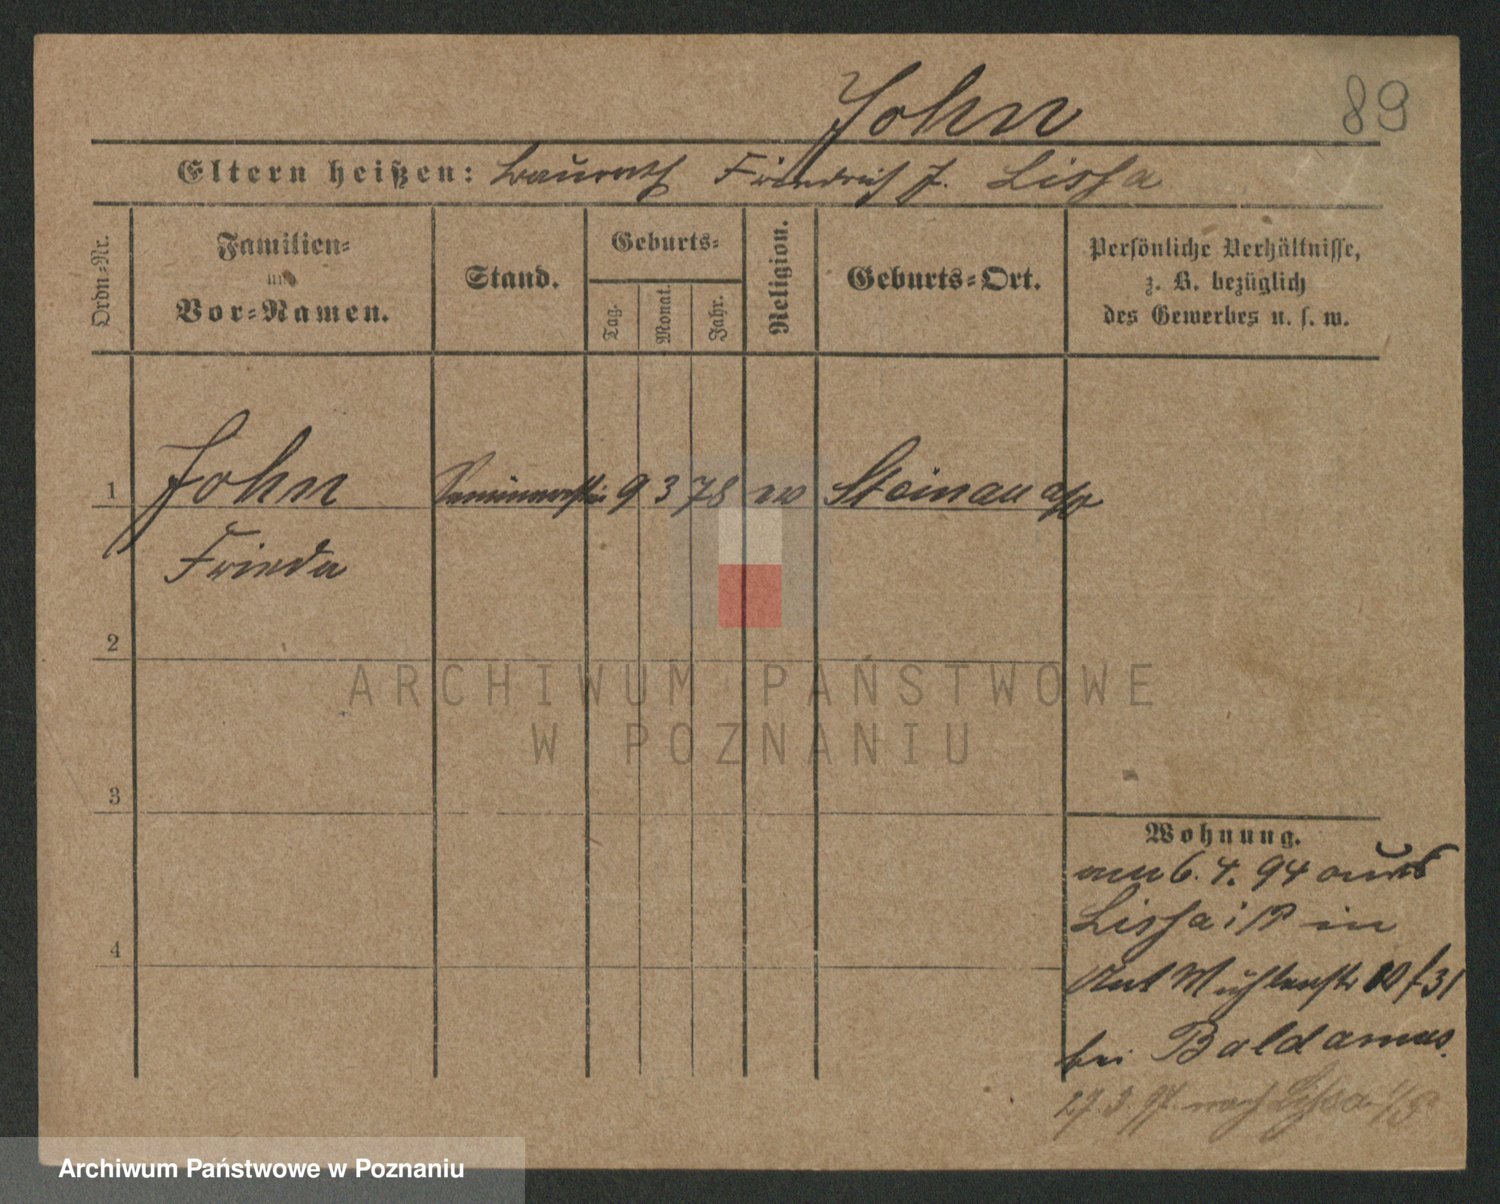 John
89
Eltern heißen: Baurath Friedrich J. Lissa
Ordn-Nr.
Familien-
und
Vor-Namen.
Stand.
Geburts-
Tag.
Monat.
Jahr.
Religion.
Geburts-Ort.
Persönliche Verhältnisse,
z. B. bezüglich
des Gewerbes u. s. w.
1 John Seminaristin 9 3 78 ev Steinau a/O
Frieda
2
ARCHIWUM PAŃSTWOWE
W POZNANIU
3
4
Wohnung.
am 6. 4. 94 aus
Lissa i/P in
Mühlenstr 31
bei Baldamus.
27. 3. 97. nach Lissa i/P
Archiwum Państwowe w Poznaniu